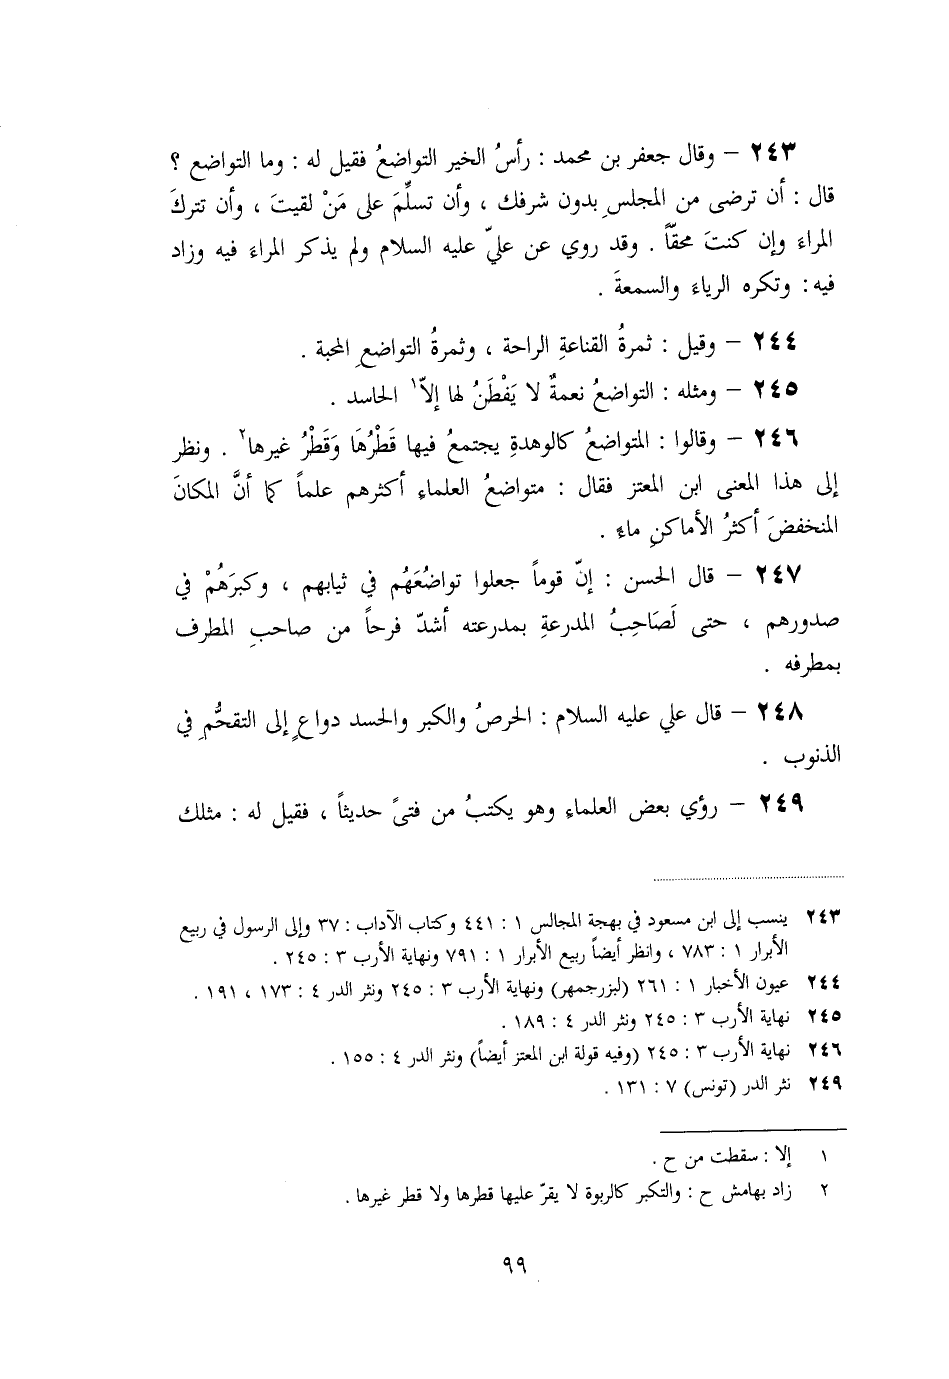 ٢٤٣ – وقال جعفر بن محمد : رأسُ الخير التواضعُ فقيل له : وما التواضع ؟
قال : أن ترضى من المجلسِ بدون شرفك ، وأن تسلِّمَ على مَنْ لقيتَ ، وأن تتركَ
المراءَ وإن كنتَ محقّاً . وقد روي عن عليّ عليه السلام ولم يذكر المراءَ فيه وزاد
فيه : وتكره الرياءَ والسمعةَ .
٢٤٤ – وقيل : ثمرةُ القناعةِ الراحة ، وثمرةُ التواضعِ المحبة .
٢٤٥ – ومثله : التواضعُ نعمةٌ لا يَفْطَنُ لها إلاّ١ الحاسد .
٢٤٦ – وقالوا : المتواضعُ كالوهدةِ يجتمعُ فيها قَطْرُهَا وَقَطْرُ غيرها٢ . ونظر
إلى هذا المعنى ابن المعتز فقال : متواضعُ العلماءِ أكثرهم علماً كما أنَّ المكانَ
المنخفضَ أكثرُ الأماكنِ ماءً .
٢٤٧ – قال الحسن : إنّ قوماً جعلوا تواضُعَهُم في ثيابهم ، وكبرَهُمْ في
صدورهم ، حتى لَصَاحِبُ المدرعةِ بمدرعته أشدّ فرحاً من صاحبِ المطرف
بمطرفه .
٢٤٨ – قال علي عليه السلام : الحرصُ والكبر والحسد دواعٍ إلى التقحُّمِ في
الذنوب .
٢٤٩ – رؤي بعض العلماءِ وهو يكتبُ من فتىً حديثاً ، فقيل له : مثلك
٢٤٣ ينسب إلى ابن مسعود في بهجة المجالس ١ : ٤٤١ وكتاب الآداب : ٣٧ وإلى الرسول في ربيع
الأبرار ١ : ٧٨٣ ، وانظر أيضاً ربيع الأبرار ١ : ٧٩١ ونهاية الأرب ٣ : ٢٤٥ .
٢٤٤ عيون الأخبار ١ : ٢٦١ (لبزرجمهر) ونهاية الأرب ٣ : ٢٤٥ ونثر الدر ٤ : ١٧٣ ، ١٩١ .
٢٤٥ نهاية الأرب ٣ : ٢٤٥ ونثر الدر ٤ : ١٨٩ .
٢٤٦ نهاية الأرب ٣ : ٢٤٥ (وفيه قولة ابن المعتز أيضاً) ونثر الدر ٤ : ١٥٥ .
٢٤٩ نثر الدر (تونس) ٧ : ١٣١ .
١ إلا : سقطت من ح .
٢ زاد بهامش ح : والتكبر كالربوة لا يقرّ عليها قطرها ولا قطر غيرها .
٩٩